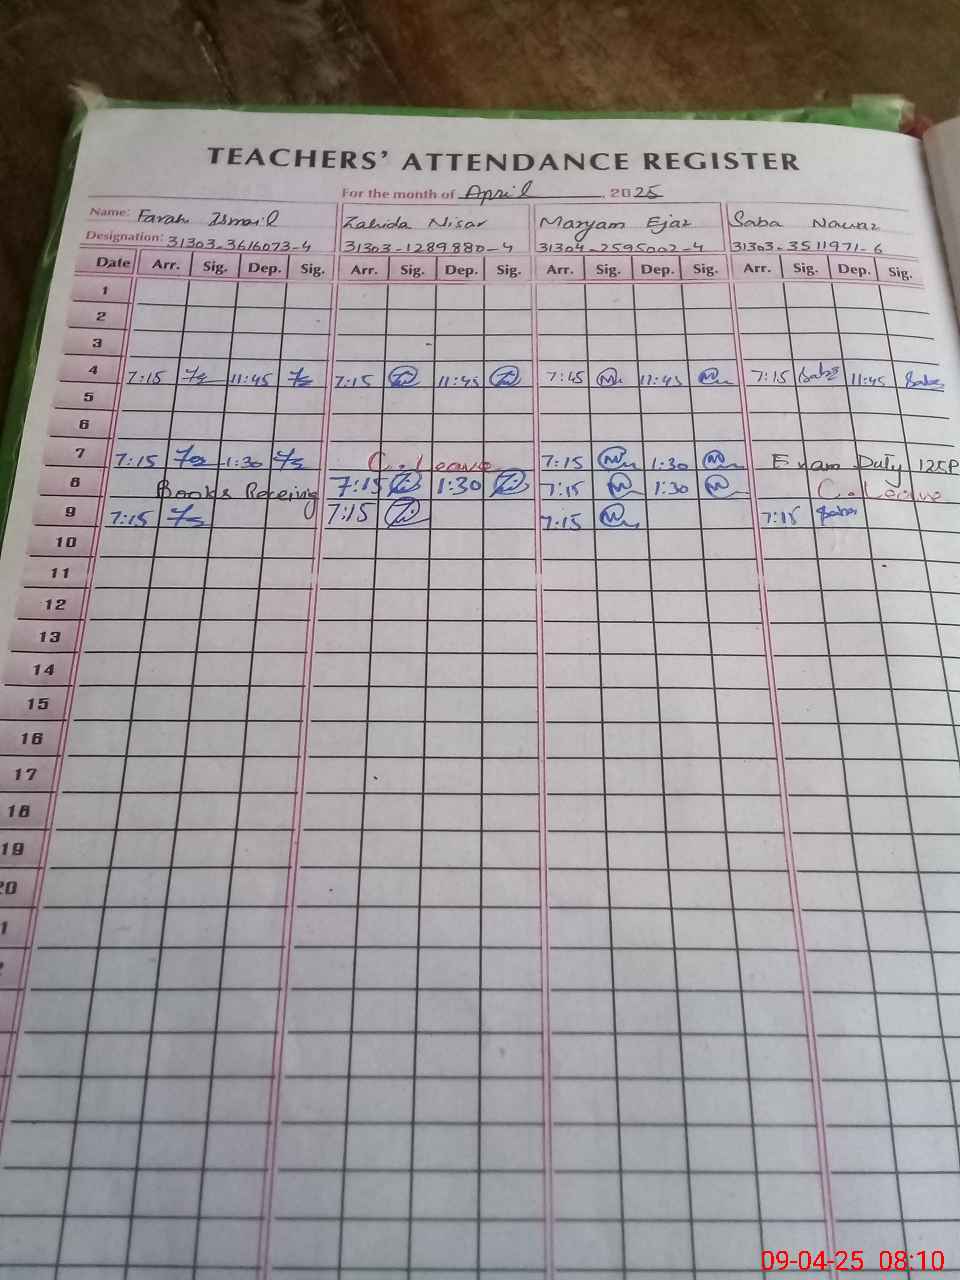 TEACHERS' ATTENDANCE REGISTER
For the month of April, 2025
Name: Farah Ismail Zahida Nisar Maryam Ejaz Saba Nawaz
Designation: 31303-3616073-4 31303-1289880-4 31304-2595002-4 31303-3511971-6
Date Arr. Sig. Dep. Sig. Arr. Sig. Dep. Sig. Arr. Sig. Dep. Sig. Arr. Sig. Dep. Sig.
1
2
3
4 7:15 11:45 7:15 11:45 7:15 11:45 7:15 Saba 11:45 Saba
5
6
7 7:15 1:30 C. Leave 7:15 1:30 Exam Duty
8 Books Receiving 7:15 1:30 7:15 1:30 C. Leave
9 7:15 7:15 7:15 7:15 Saba
10
11
12
13
14
15
16
17
18
19
20
1
09-04-25 08:10